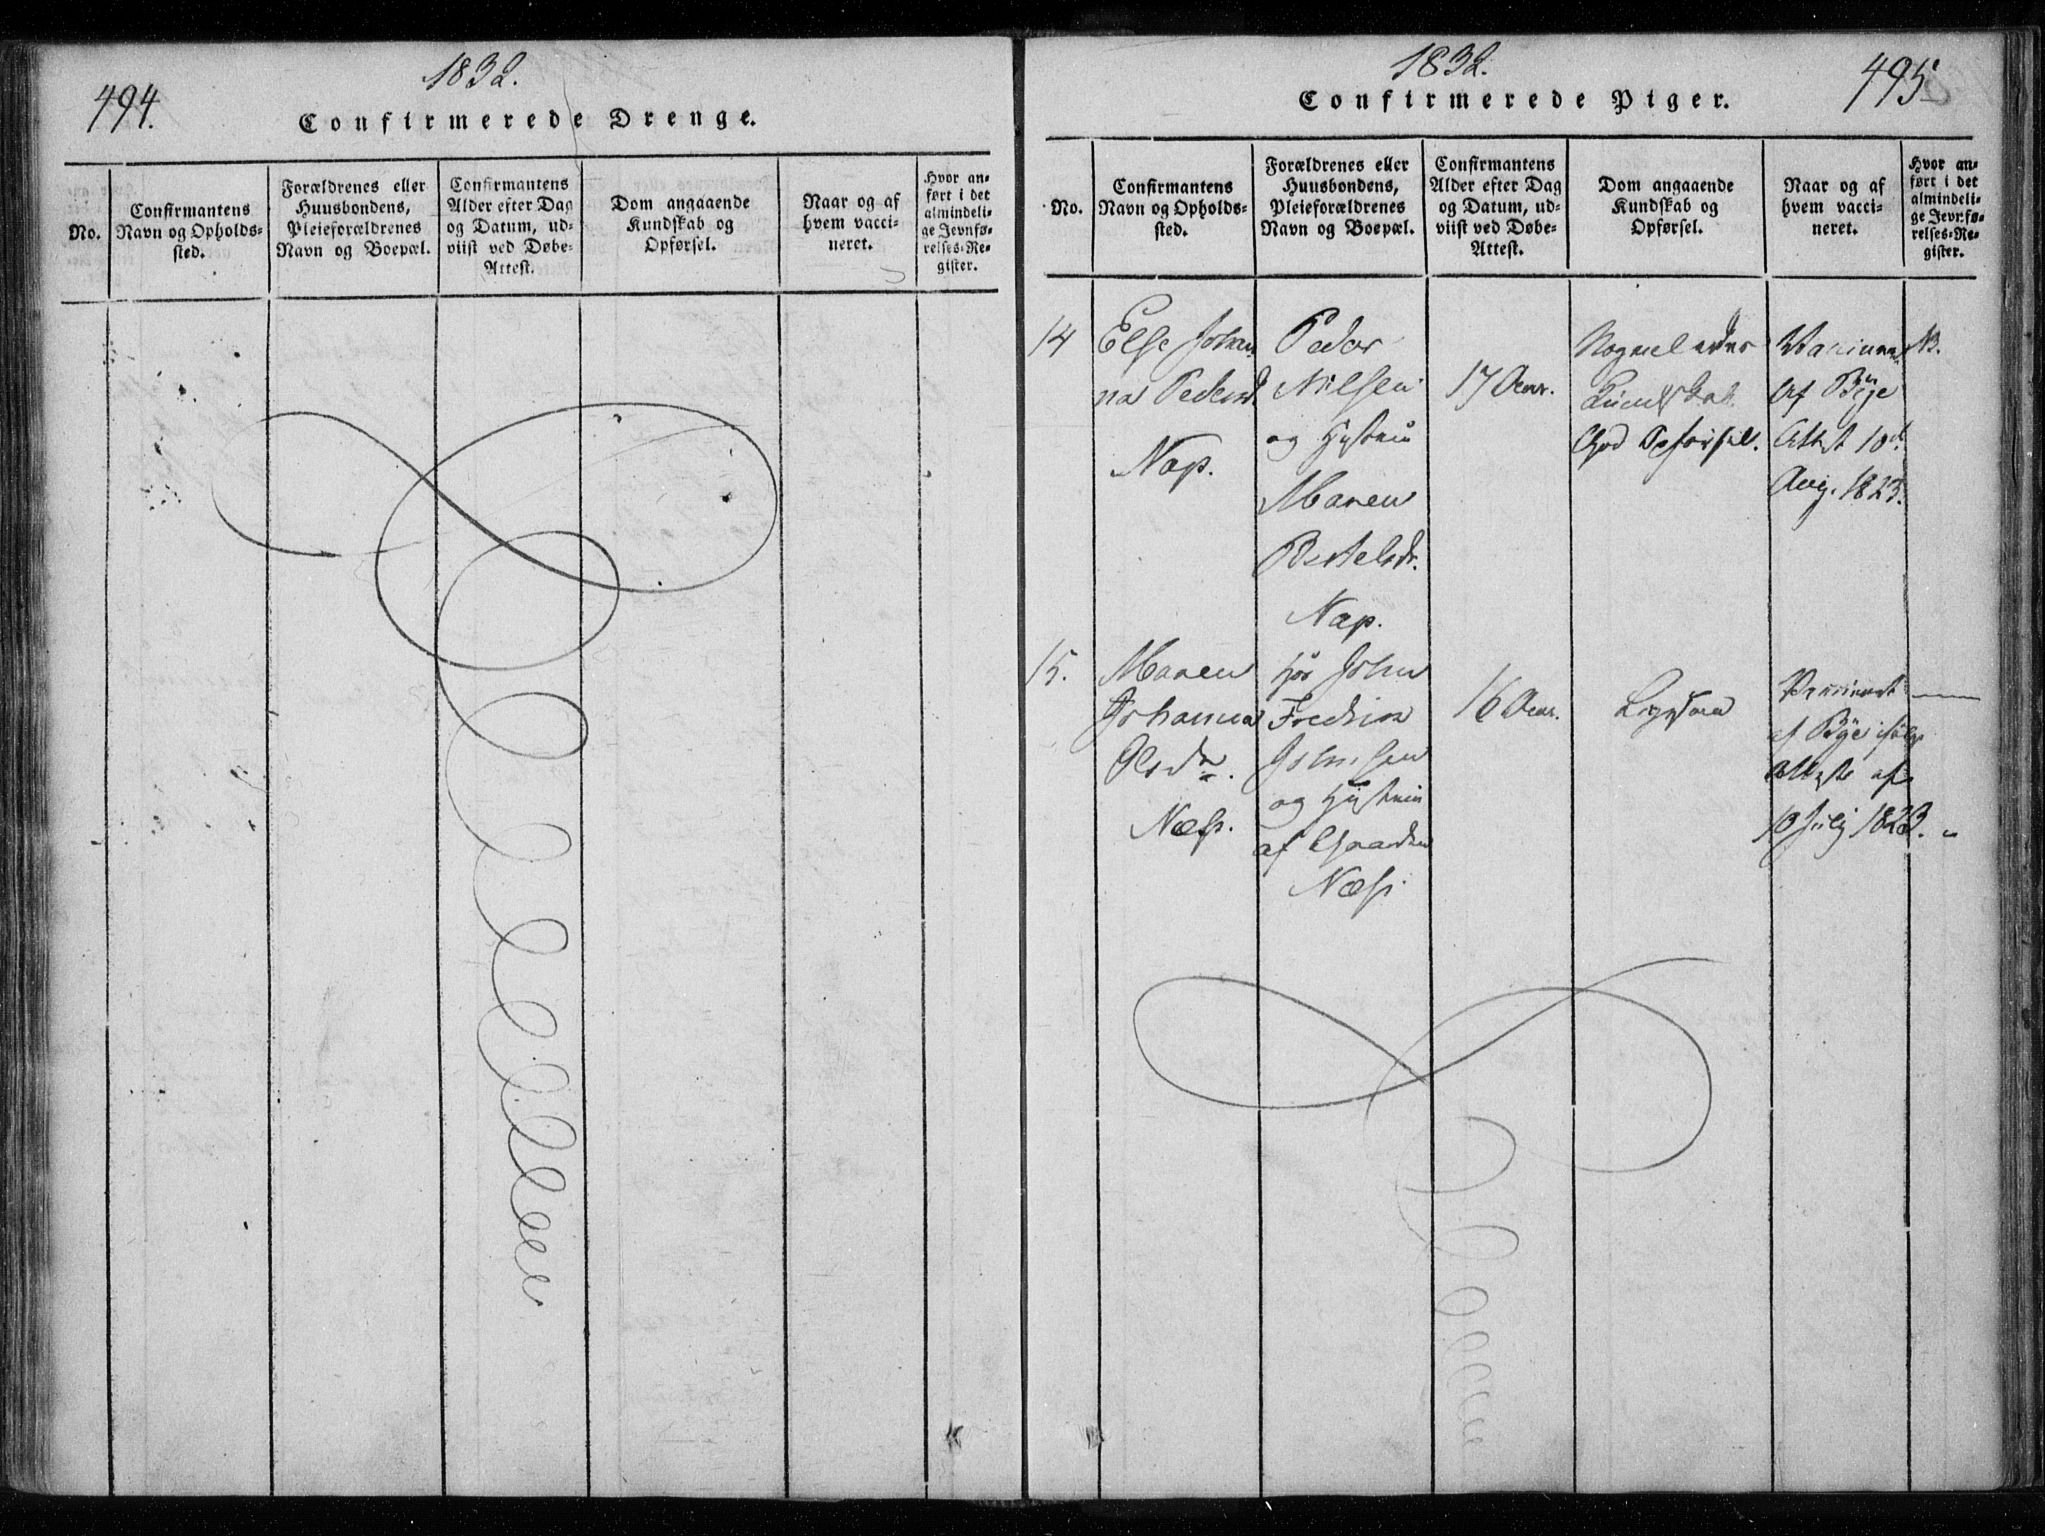 494.
1832.
Confirmerede Drenge.
No.
Confirmantens
Navn og Opholds-
sted.
Forældrenes eller
Huusbondens,
Pleieforældrenes
Navn og Boepæl.
Confirmantens
Alder efter Dag
og Datum, ud-
viist ved Døbe-
Attest.
Dom angaaende
Kundskab og
Opførsel.
Naar og af
hvem vacci-
neret.
Hvor an-
ført i det
almindeli-
ge Jevnfø-
relses-Re-
gister.
1832.
495
Confirmerede Piger.
No.
Confirmantens
Navn og Opholds-
sted.
Forældrenes eller
Huusbondens,
Pleieforældrenes
Navn og Boepæl.
Confirmantens
Alder efter Dag
og Datum, ud-
viist ved Døbe-
Attest.
Dom angaaende
Kundskab og
Opførsel.
Naar og af
hvem vacci-
neret.
Hvor an-
ført i det
almindeli-
ge Jevnfø-
relses-Re-
gister.
14
Else Johan
na Pedersd.
Nap.
Peder
Nilsen
og Hustrue
Maren
Bertelsdr.
Nap.
17 Aar.
Kundskab.
God Opførsel.
af Bye
Attest 10d
Aug. 1823.
15.
Maren
Johanna
Olsdr.
Næss.
hos John
Fredrik
Johnsen
og Hustrue
af Gaarden
Næss.
16 Aar.
Ligesaa
Vaccineret
af Bye ifølge
Attest af
10 July 1823.